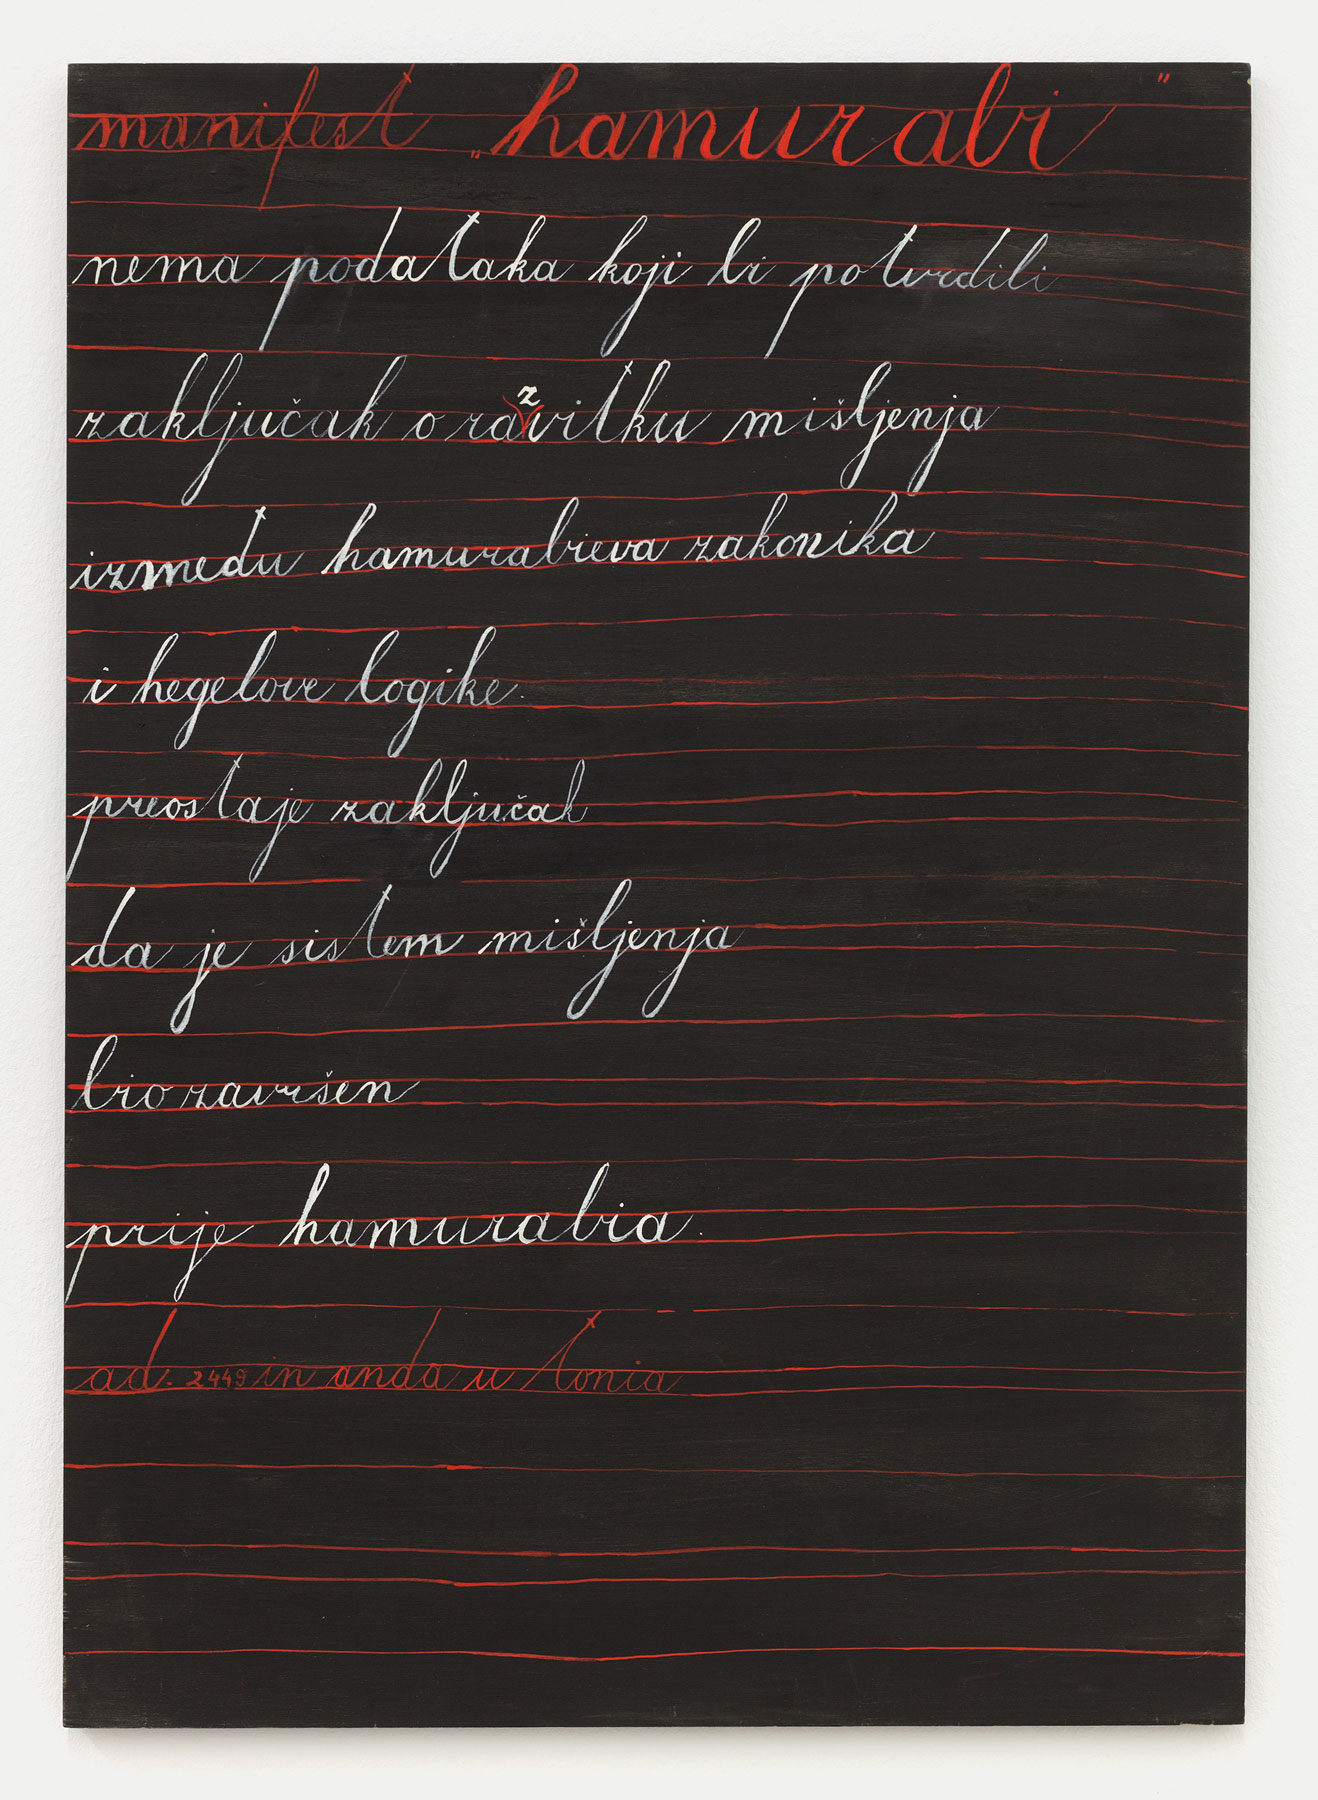 manifest „hamurabi"
nema podataka koji bi potvrdili
zaključak o razvitku mišljenja
između hamurabieva zakonika
i hegelove logike.
preostaje zaključak
da je sistem mišljenja
bio završen
prije hamurabia.
ad. 2449 in anda u tonia